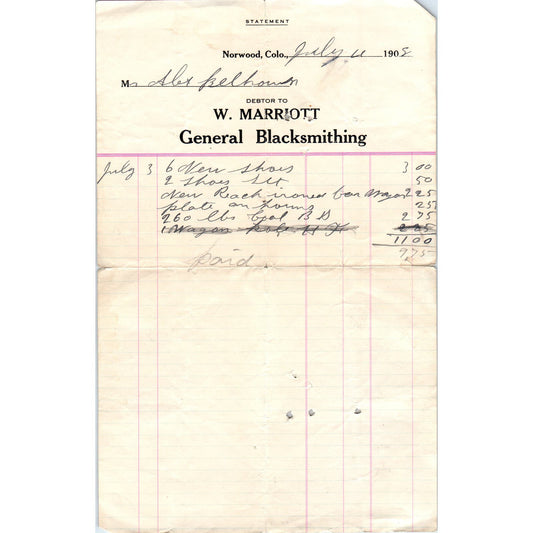 STATEMENT
Norwood, Colo., July 11 1908
M r Alex
DEBTOR TO
W. MARRIOTT
General Blacksmithing
July 3 6 New Shoes 3 00
2 Shoes set 50
New Reach ironed for Wagon 2 25
plate on 25
260 lbs Coal 2 75
1 Wagon
11 00
9 75
paid